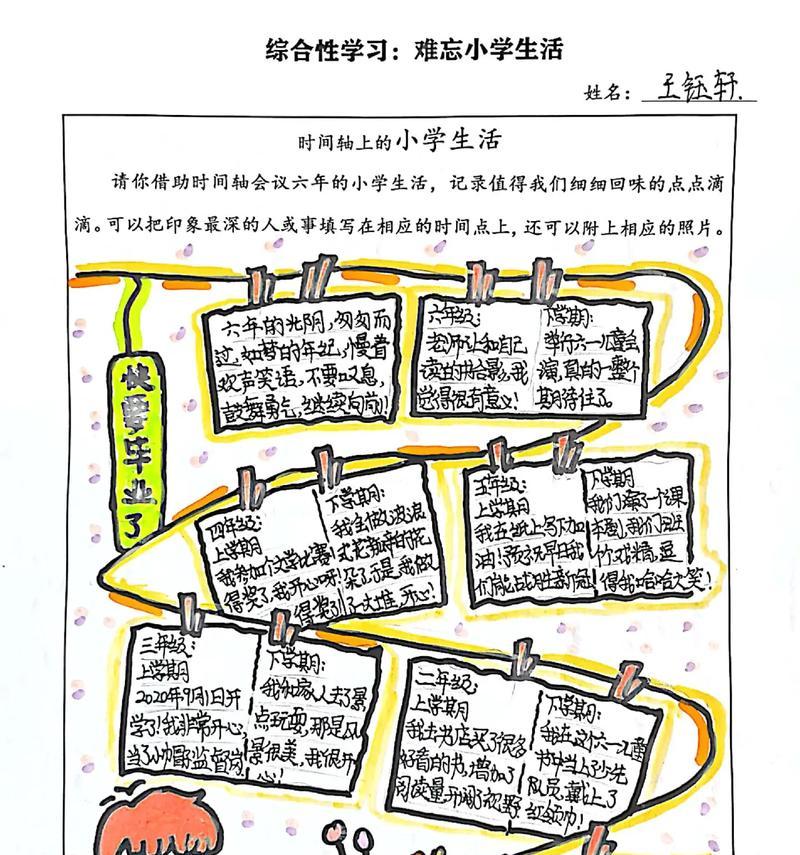 综合性学习：难忘小学生活
姓名：王钰轩
时间轴上的小学生活
请你借助时间轴会议六年的小学生活，记录值得我们细细回味的点点滴
滴。可以把印象最深的人或事填写在相应的时间点上，还可以附上相应的照片。
快要毕业了
六年的光阴，匆匆而
过，如梦的年纪，慢着
欢声笑语，不要叹息，
鼓舞勇气，继续向前！
六年级：
老师让和自己
读的书合影，我
觉得很有意义！
下学期：
举行六一儿童会
演，真的一整个
期待住了。
四年级：
上学期
我参加作文学比赛！
得奖了，我开心呀！
得奖了！
下学期：
我会做波浪
式花
朵，于是我做
了一大堆，开心！
五年级：
上学期
我在纸上写下加
油！预示早日我
们能战胜新冠
下学期：
我们演了一个课
本剧，我们班
个戏精，逗
得我哈哈大笑！
三年级：
上学期
2020年9月1日开
学了！我非常开心，
当了小中哥监督岗
下学期：
我和家人去了景
点玩耍，那是风
景很美，我很开
心！
二年级：
上学期
我去书店买了很多
好看的书，增加了
阅读量，开阔了视野
下学期：
我在这个六一儿童
节中当上了少先
队员，戴上了
红领巾！